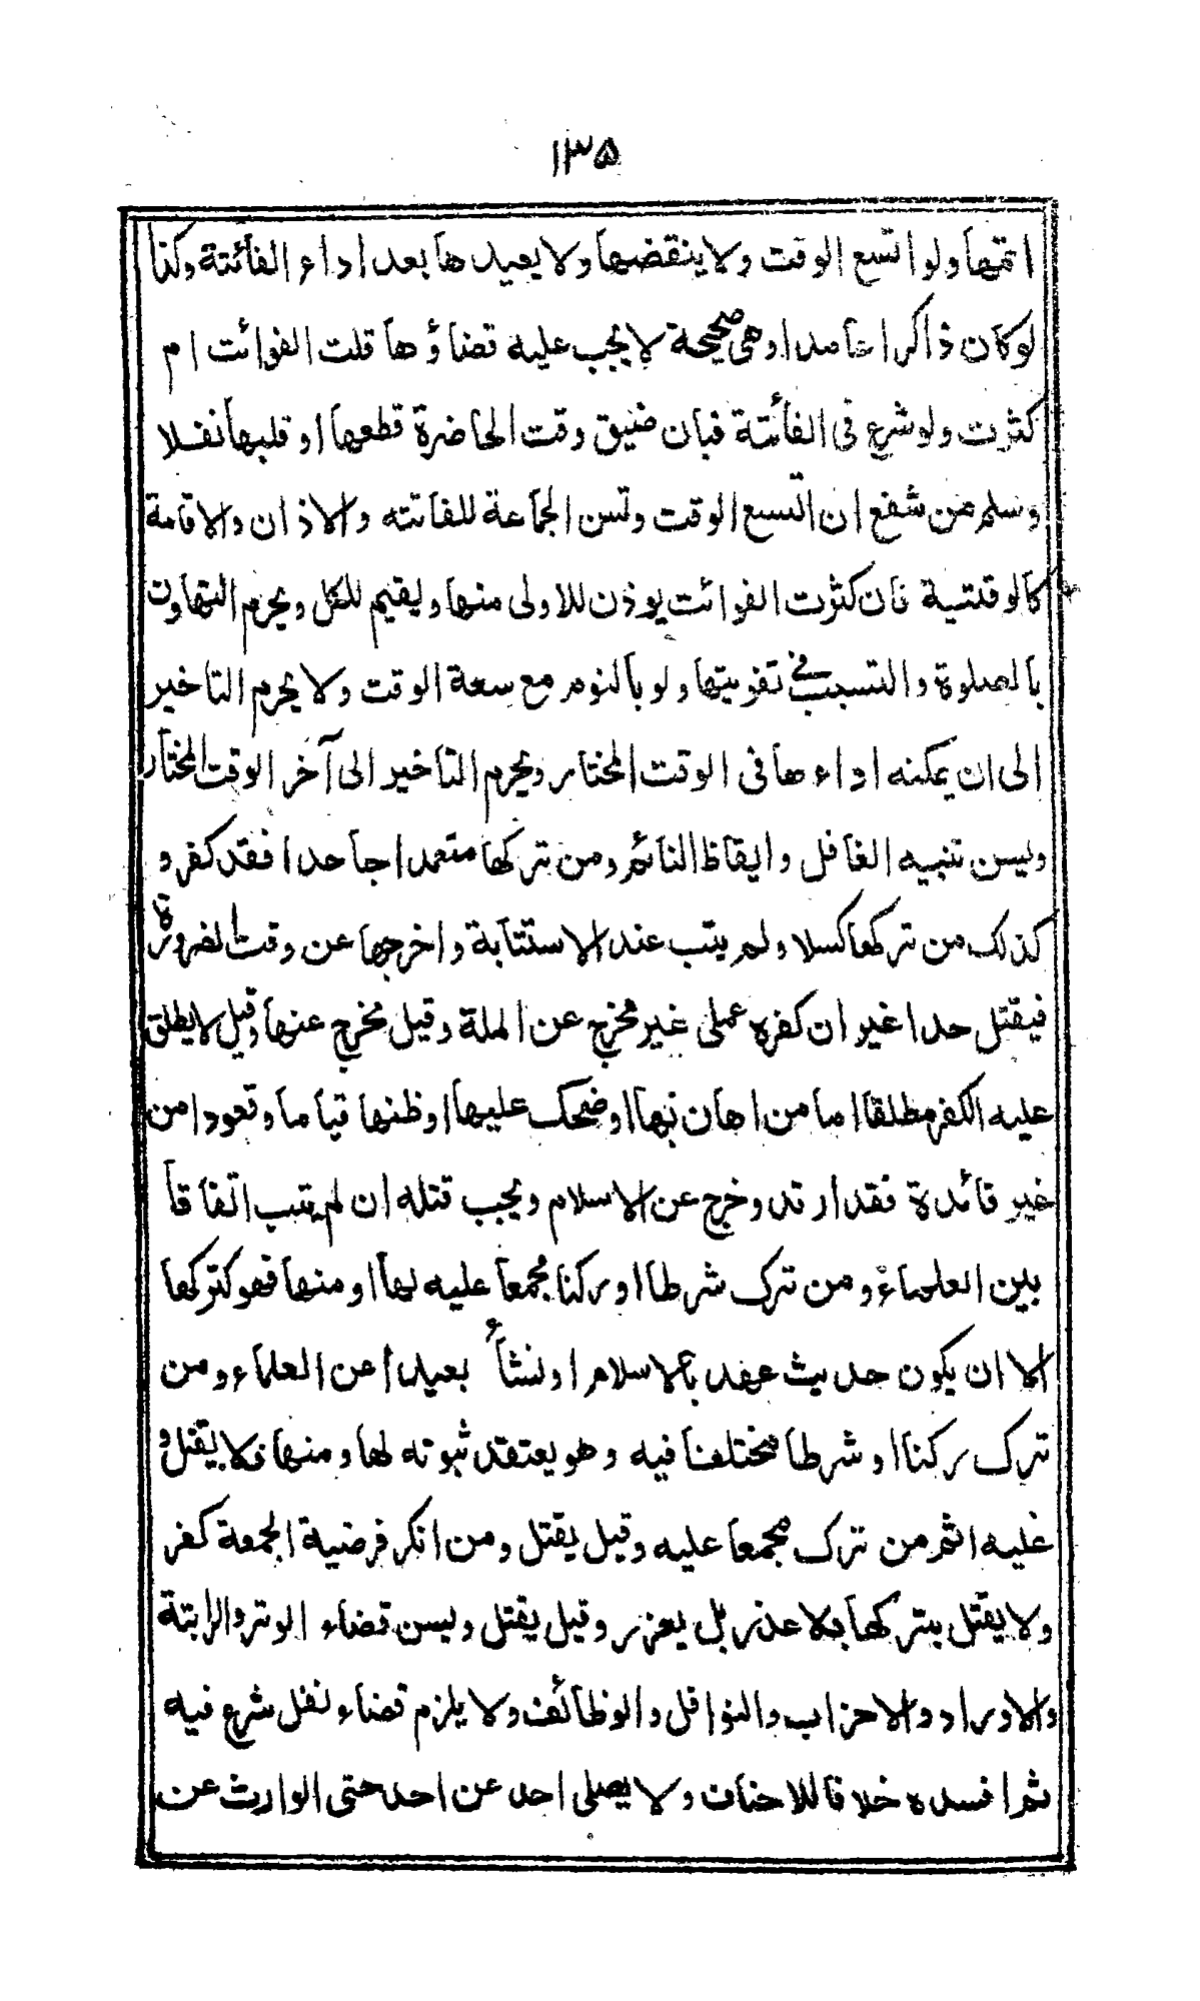 ١٣٥
اتمها ولو اتسع الوقت ولا ينقضها ولا يعيدها بعد اداء الفائتة وكذا
لو كان ذاكرا عامدا وهى صحيحة لا يجب عليه قضاؤها قلت الفوائت ام
كثرت ولو شرع فى الفائتة فبان ضيق وقت الحاضرة قطعها او قلبها نفلا
وسلم من شفع ان اتسع الوقت وتسن الجماعة للفائته والاذان والاقامة
كالوقتية فان كثرت الفوائت يوذن للاولى منها وليقيم للكل ويحرم التهاون
بالصلوة والتسبب فى تفويتها ولو بالنوم مع سعة الوقت ولا يحرم التاخير
الى ان يمكنه اداءها فى الوقت المختار ويحرم التاخير الى آخر الوقت المختار
ويسن تنبيه الغافل وايقاظ النائم ومن تركها متعمدا جاحدا فقد كفر و
كذلك من تركها كسلا ولم يتب عند الاستتابة واخرجها عن وقت الضرورة
فيقتل حدا غير ان كفره عملى غير مخرج عن الملة وقيل مخرج عنها وقيل لا يطلق
عليه الكفر مطلقا اما من اهان بها او ضحك عليها او ظنها قياما وقعودا من
غير فائدة فقد ارتد وخرج عن الاسلام ويجب قتله ان لم يتب اتفاقا
بين العلماء ومن ترك شرطا او ركنا مجمعا عليه لها او منها فهو كتركها
الا ان يكون حديث عهد بالاسلام او نشأ بعيدا عن العلماء ومن
ترك ركنا او شرطا مختلفا فيه وهو يعتقد ثبوته لها ومنها فلا يقتل و
عليه اثم من ترك مجمعا عليه وقيل يقتل ومن انكر فرضية الجمعة كفر
ولا يقتل بتركها بلا عذر بل يعزر وقيل يقتل ويسن قضاء الوتر والراتبة
والاوراد والاحزاب والنوافل والوظائف ولا يلزم قضاء نفل شرع فيه
ثم افسده خلافا للاحناف ولا يصلى احد عن احد حتى الوارث عن